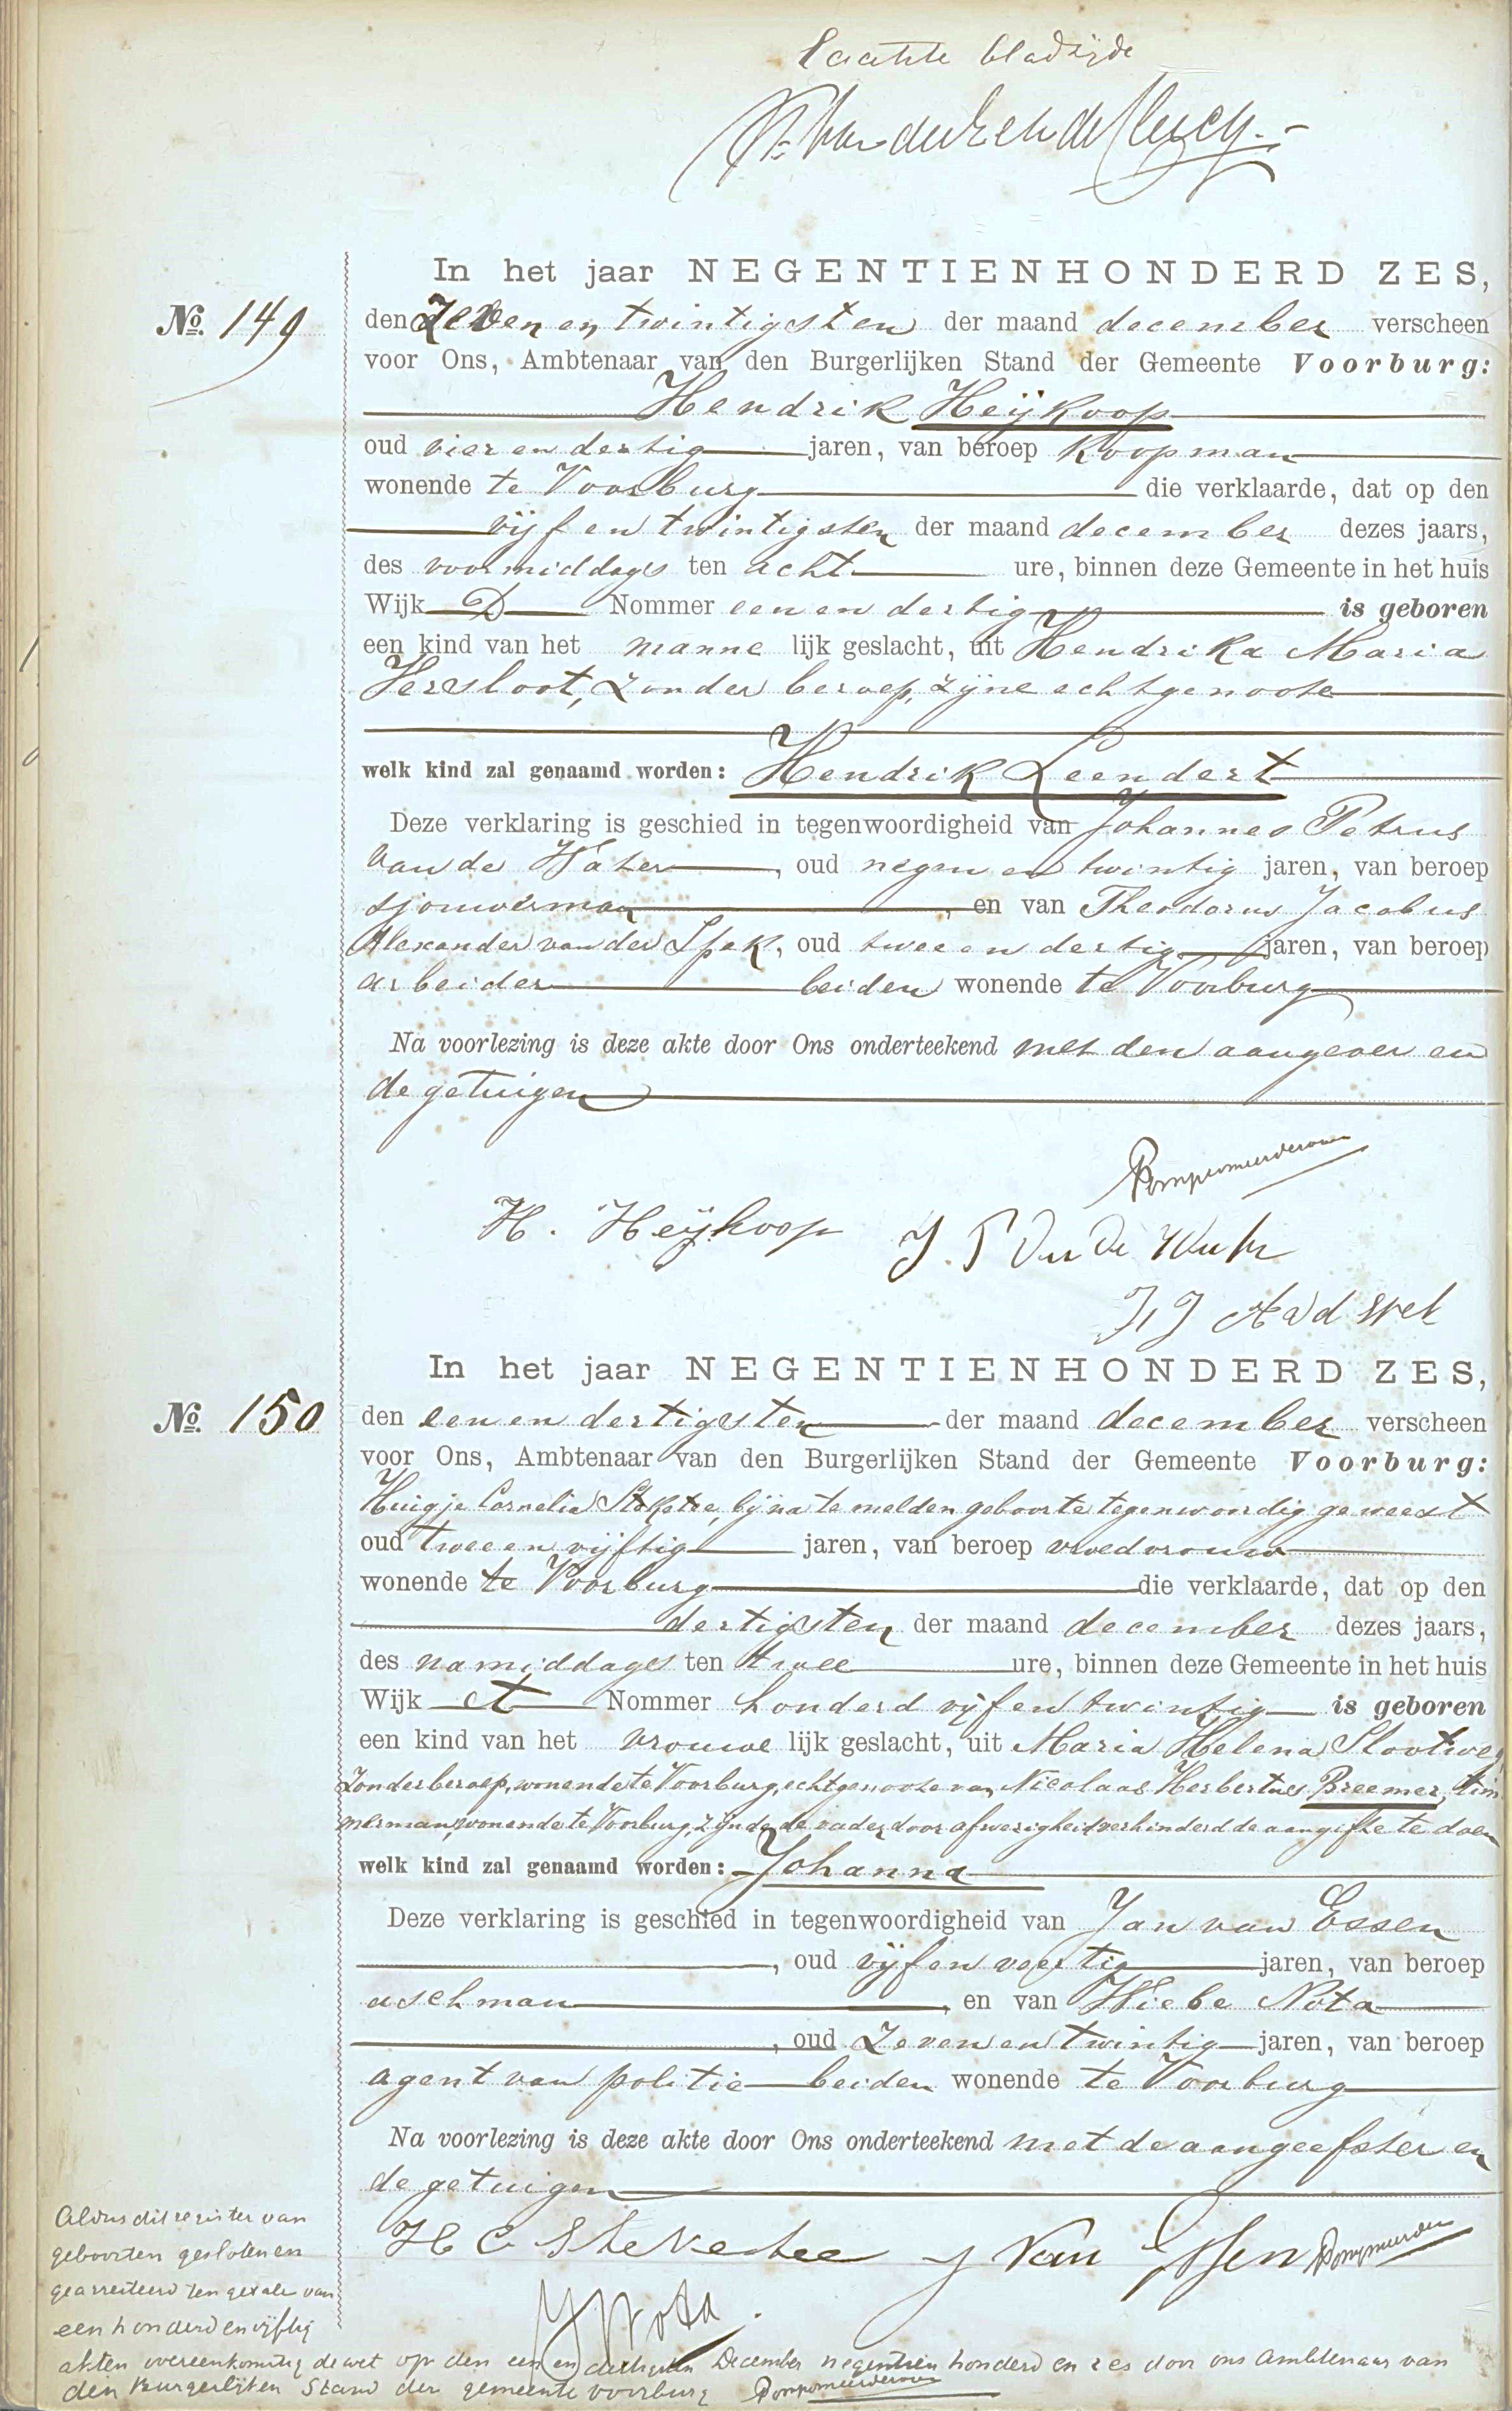 Laatste bladzijde
In het jaar NEGENTIENHONDERD ZES,
No. 149
den zeven en twintigsten der maand december verscheen
voor Ons, Ambtenaar van den Burgerlijken Stand der Gemeente Voorburg:
Hendrik Heijkoop
oud vier en dertig jaren, van beroep koopman
wonende te Voorburg die verklaarde, dat op den
vijf en twintigsten der maand december dezes jaars,
des voormiddags ten acht ure, binnen deze Gemeente in het huis
Wijk D Nommer een en dertig is geboren
een kind van het mannelijk geslacht, uit Hendrika Maria
Versloot, zonder beroep, zijne echtgenoote
welk kind zal genaamd worden: Hendrik Leendert
Deze verklaring is geschied in tegenwoordigheid van Johannes Petrus
van de Water, oud negen en twintig jaren, van beroep
sjouwerman, en van Theodorus Jacobus
Alexander van der Spek, oud twee en dertig jaren, van beroep
arbeider beiden wonende te Voorburg
Na voorlezing is deze akte door Ons onderteekend met den aangever en
de getuigen
H. Heijkoop
In het jaar NEGENTIENHONDERD ZES,
No. 150
den een en dertigsten der maand december verscheen
voor Ons, Ambtenaar van den Burgerlijken Stand der Gemeente Voorburg:
Huigje Cornelia Steketee, bij na te melden geboorte tegenwoordig geweest
oud twee en vijftig jaren, van beroep vroedvrouw
wonende te Voorburg die verklaarde, dat op den
dertigsten der maand december dezes jaars,
des namiddags ten twee ure, binnen deze Gemeente in het huis
Wijk A Nommer honderd vijf en twintig is geboren
een kind van het vrouwelijk geslacht, uit Maria Helena Slootweg,
zonder beroep, wonende te Voorburg, echtgenoote van Nicolaas Herbertus Breemer, tim
merman, wonende te Voorburg, zijnde de vader door afwezigheid verhinderd de aangifte te doen
welk kind zal genaamd worden: Johanna
Deze verklaring is geschied in tegenwoordigheid van Jan van Essen
, oud vijf en veertig jaren, van beroep
aschman, en van Wiebe Nota
, oud zeven en twintig jaren, van beroep
agent van politie beiden wonende te Voorburg
Na voorlezing is deze akte door Ons onderteekend met de aangeefster en
de getuigen
H C Steketee J van Essen
W Nota
Aldus dit register van
geboorten gesloten en
gearresteerd ten getale van
een honderd en vijftig
akten overeenkomstig de wet op den een en dertigsten December negentien honderd en zes door ons Ambtenaar van
den Burgerlijken Stand der gemeente Voorburg